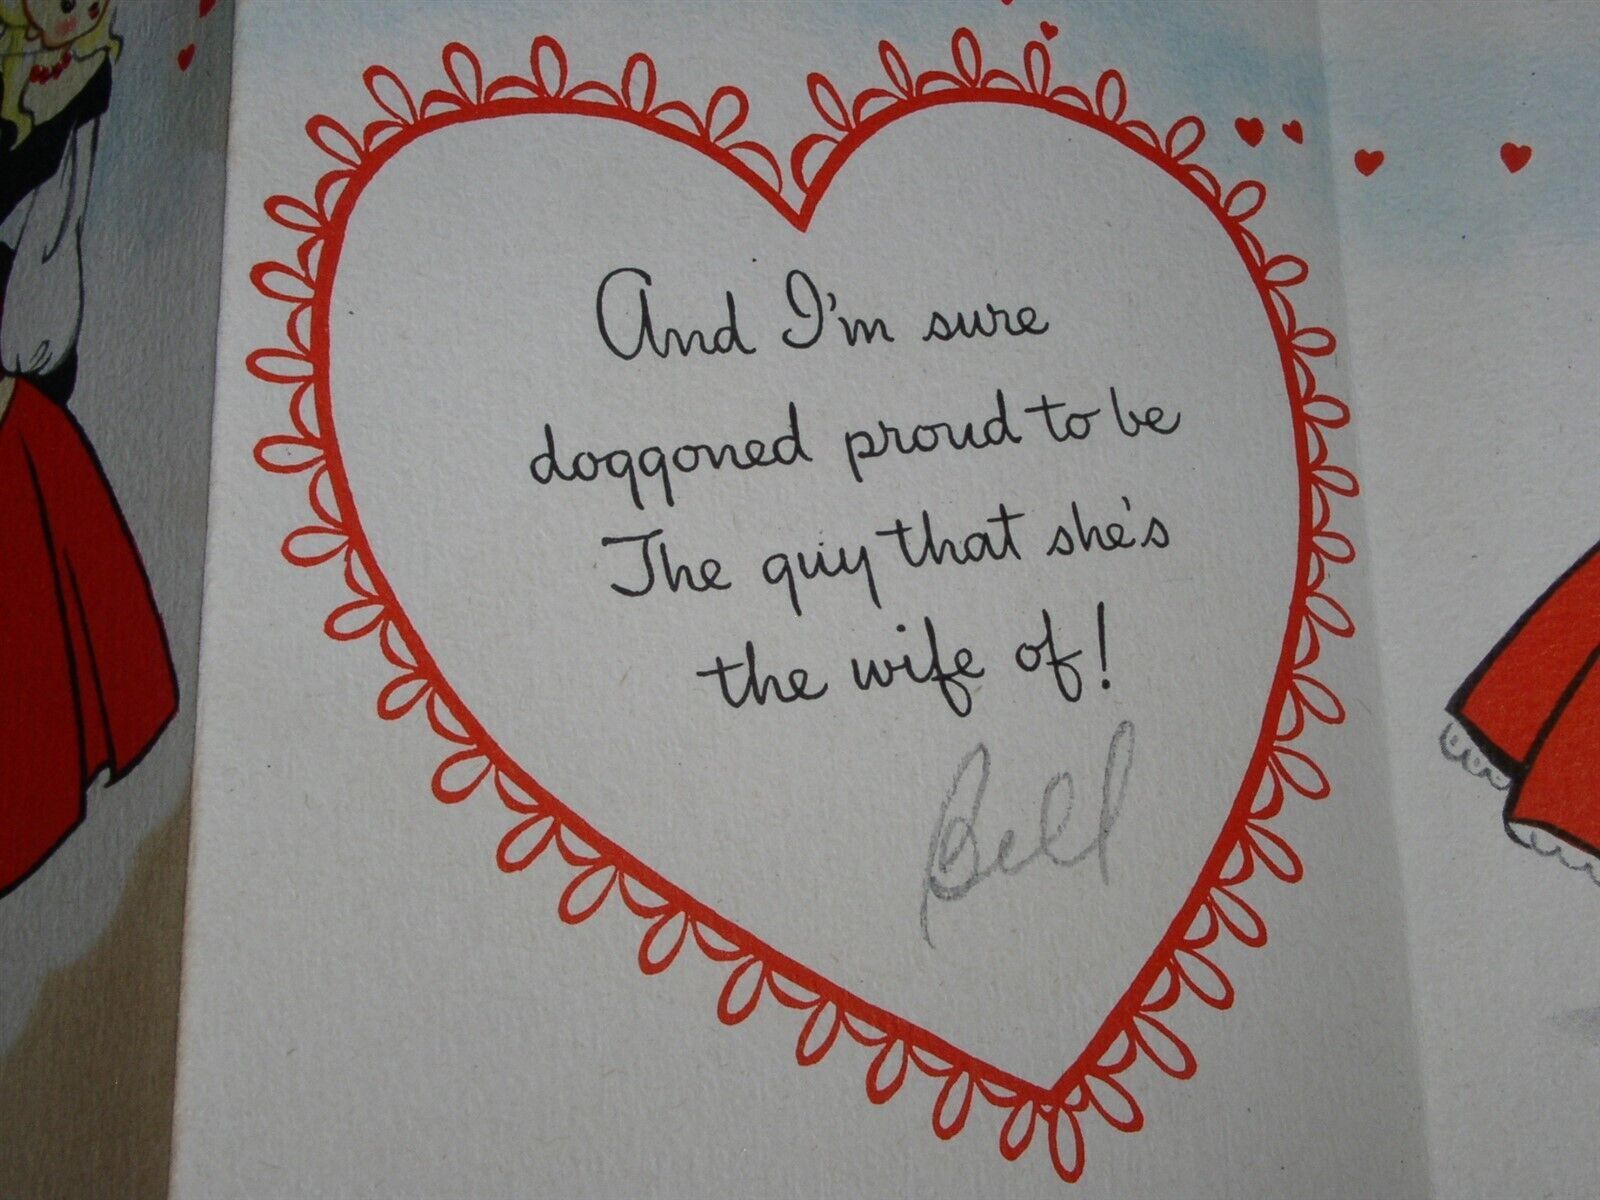 And I'm sure
doggoned proud to be
The guy that she's
the wife of!
Bill